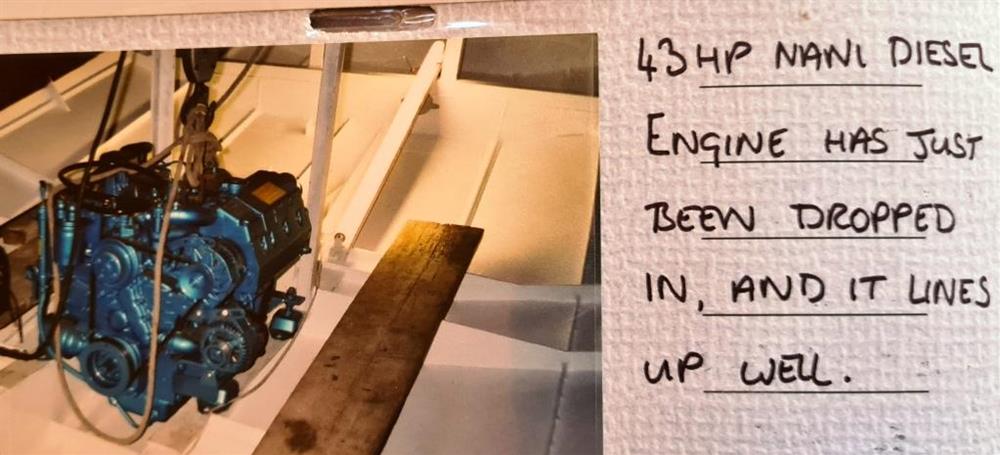 43HP NANI DIESEL
ENGINE HAS JUST
BEEN DROPPED
IN, AND IT LINES
UP WELL.